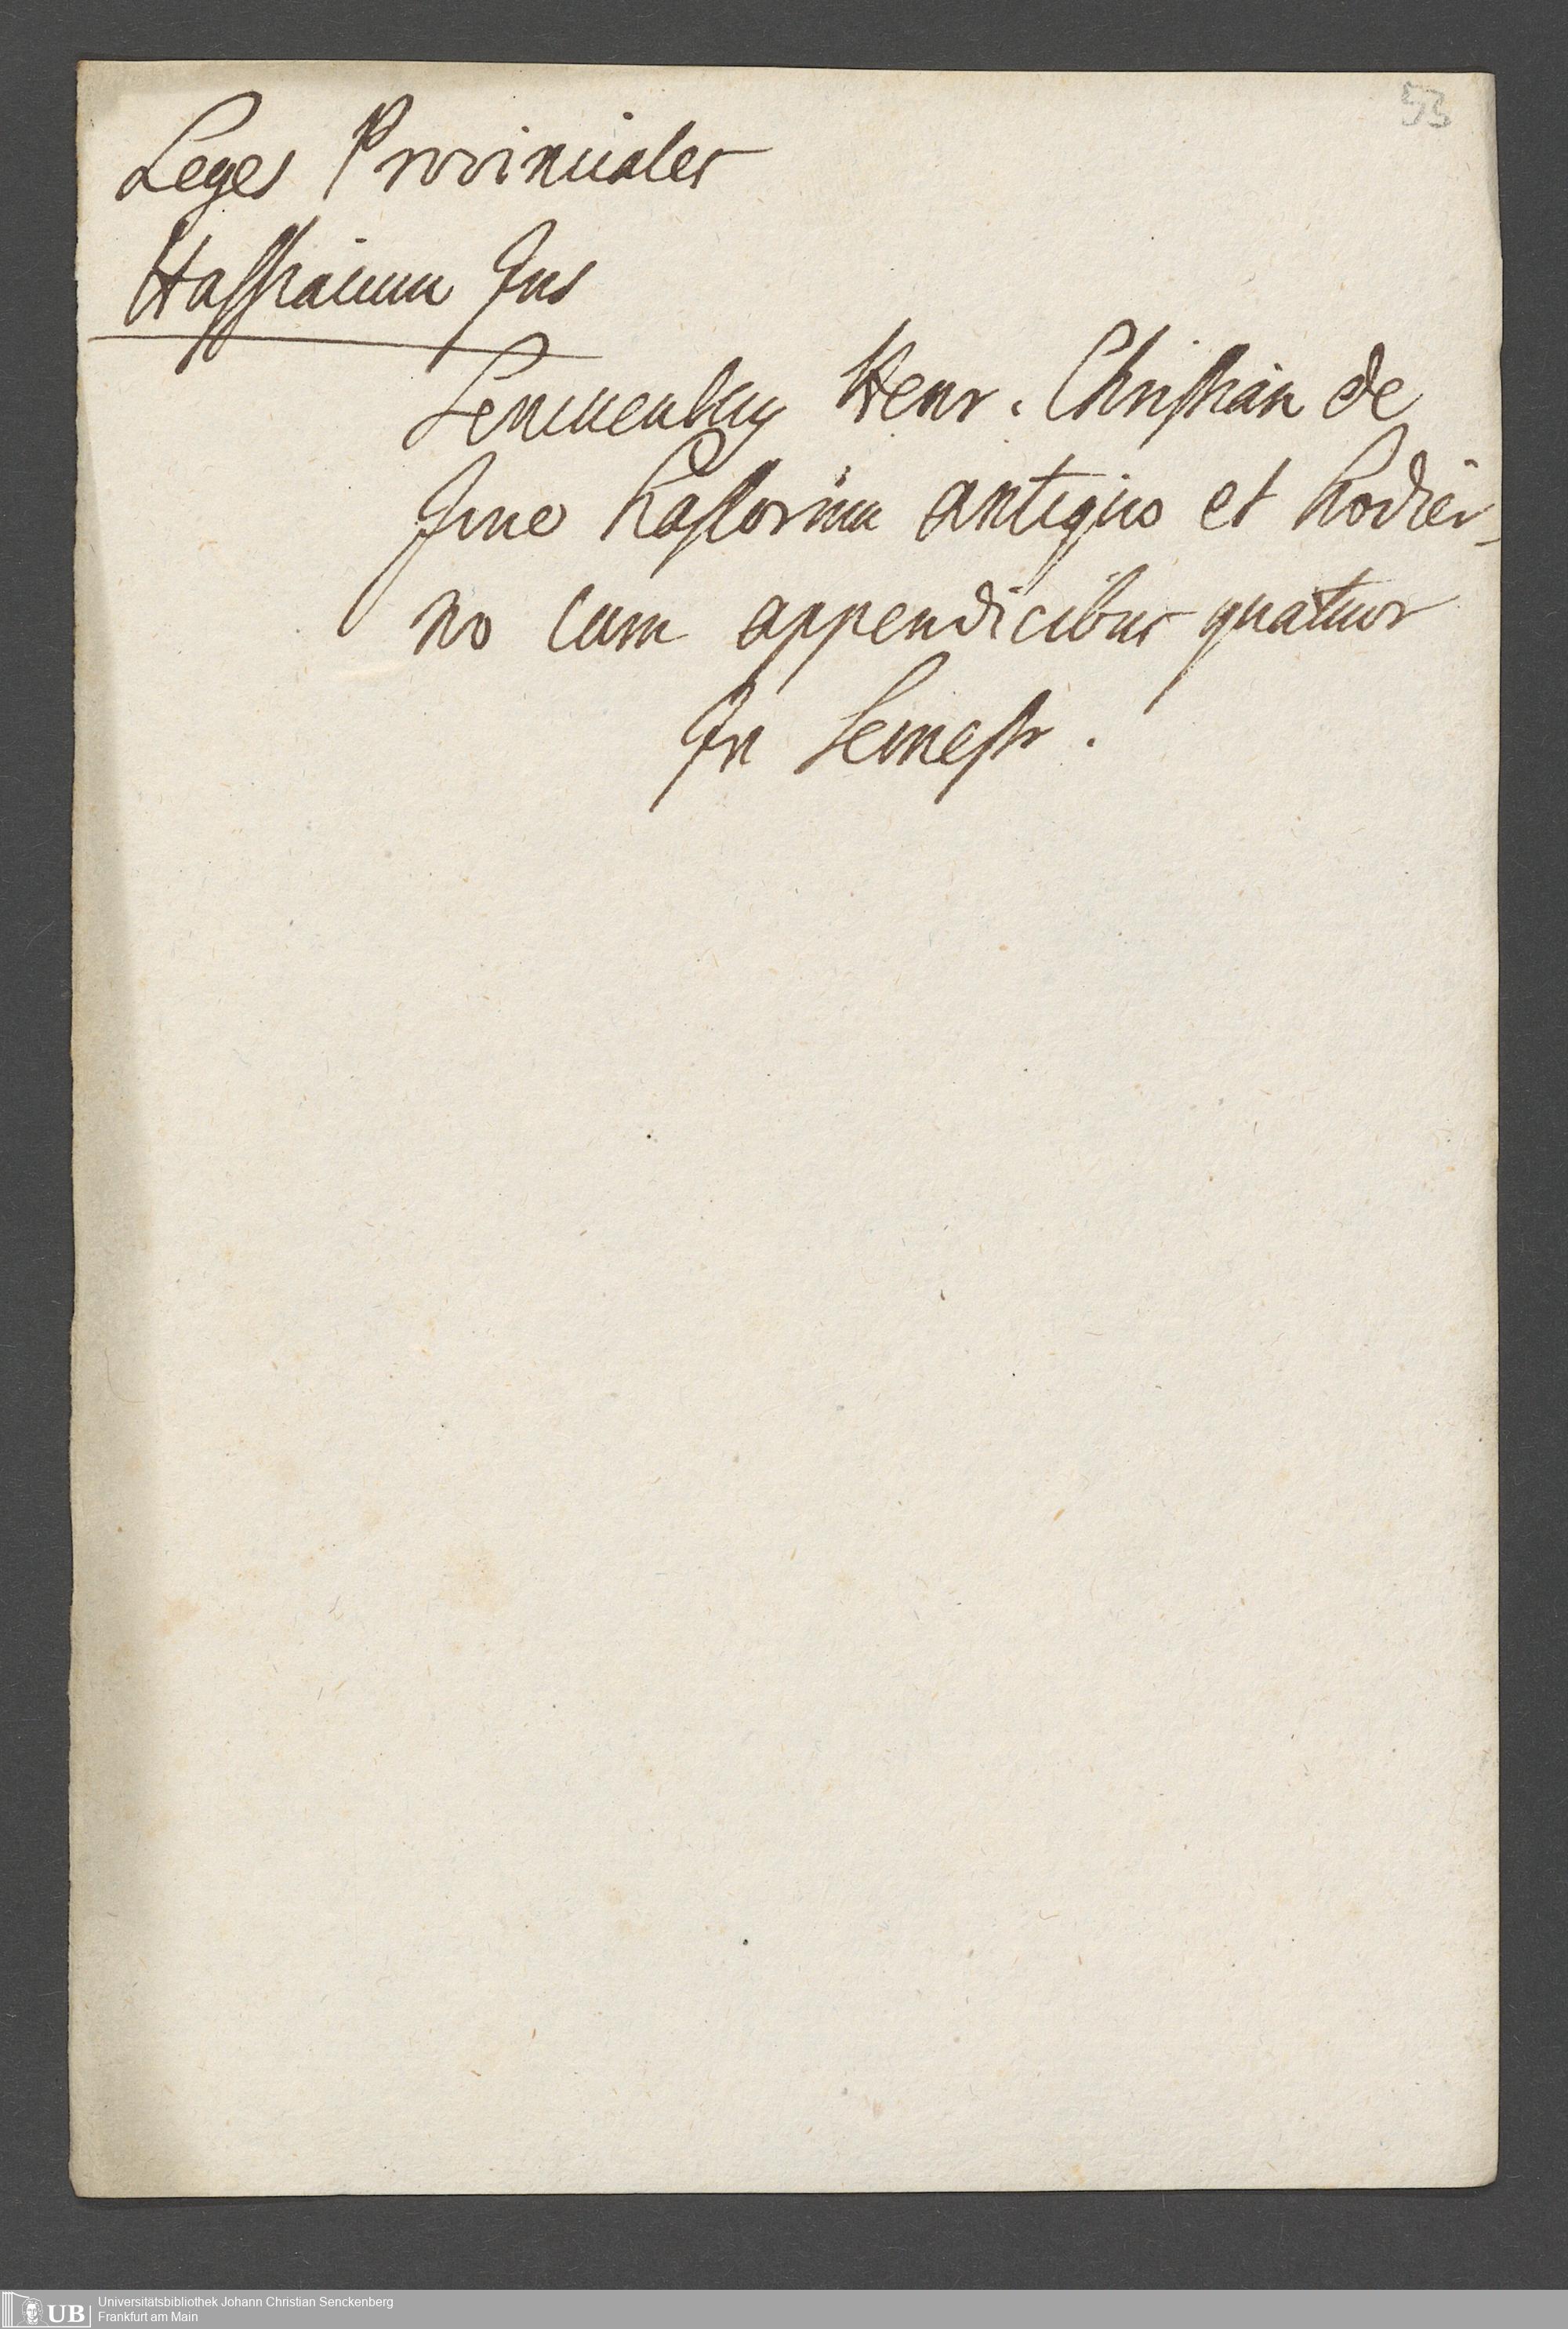 53
Leges Provinciales
Hassiacum Jus
Senckenberg Henr. Christian de
Jure Hassorum antiquo et hodier-
no cum appendicibus quatuor
In Semestr.
UB Universitätsbibliothek Johann Christian Senckenberg
Frankfurt am Main